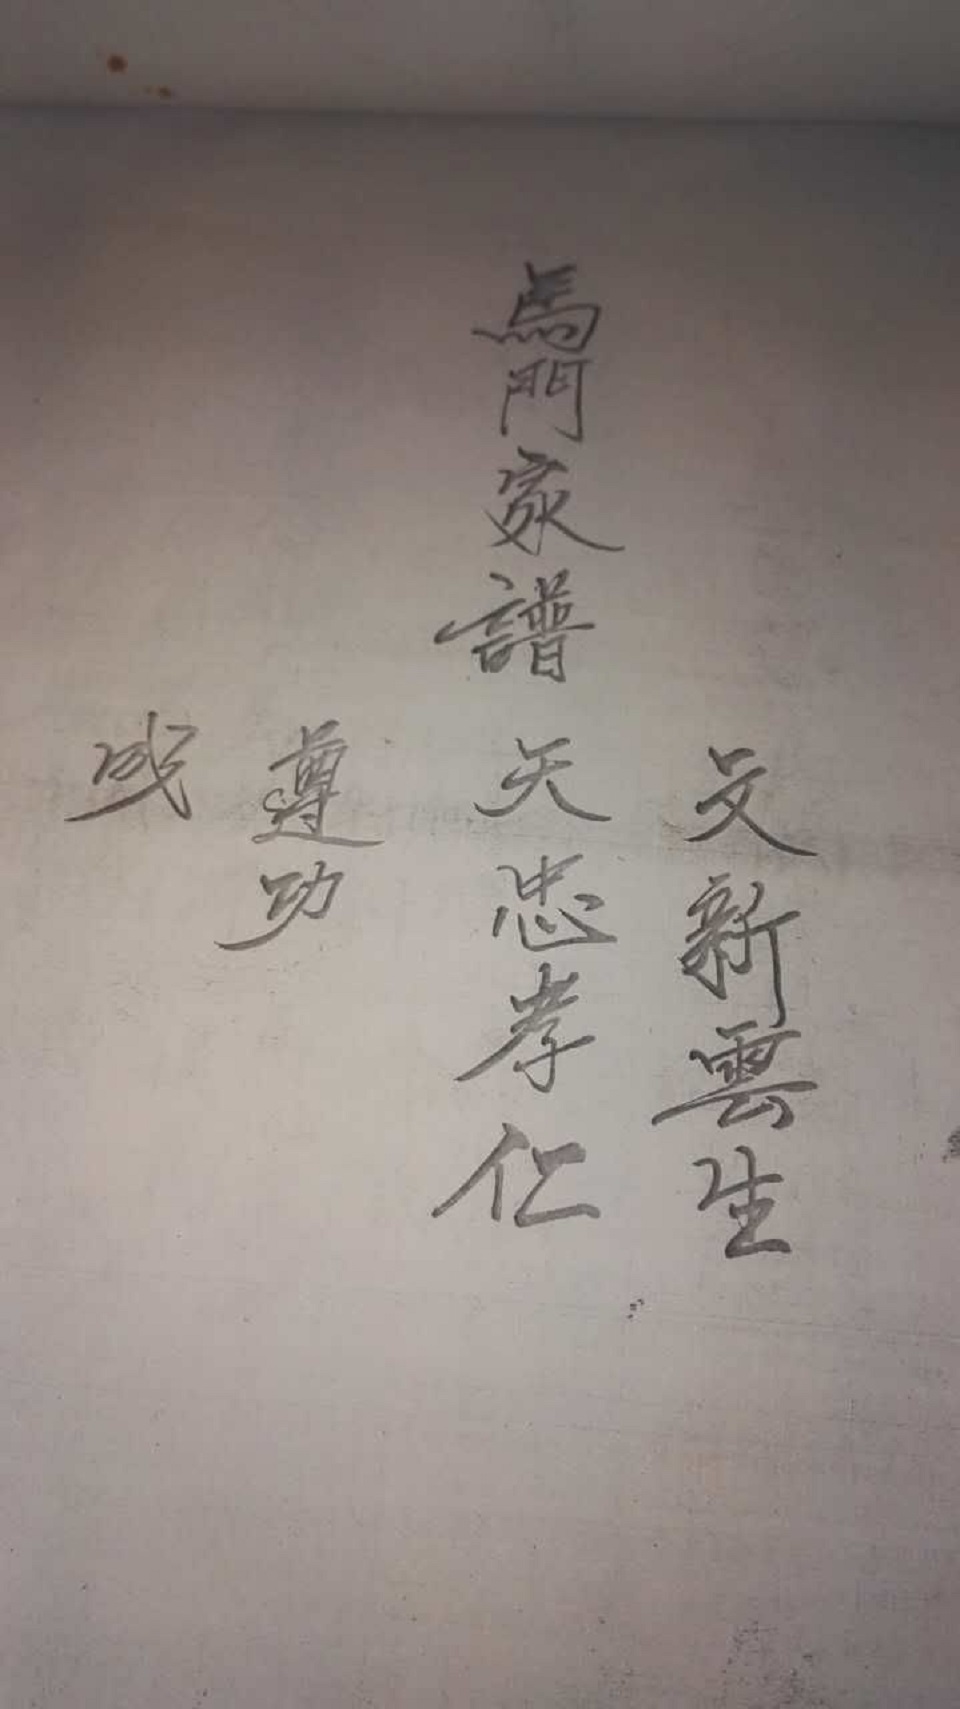 馬門家譜
文新雲生
天忠孝仁
遵功
成